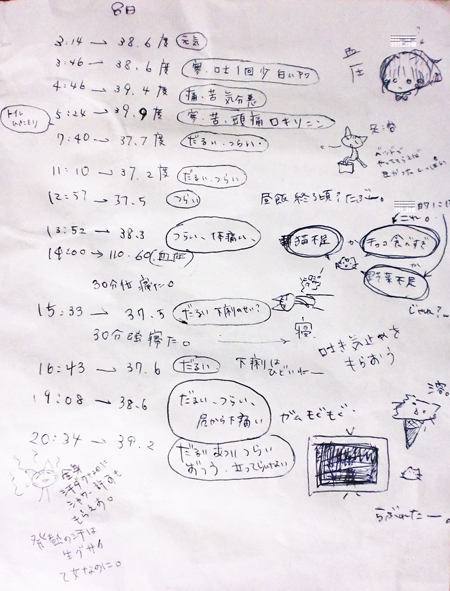 8日
3:14 → 38.6度 元気
3:46 → 38.6度 寒・吐1回少
4:46 → 39.4度 痛・苦 気分悪
5:24 → 39.9度 寒・苦・頭痛 ロキソニン
7:40 → 37.7度 だるい・つらい
11:10 → 37.2度 だるい、つらい
12:57 → 37.5 つらい
昼飯終る頃?たぶー。
13:52 → 38.3 つらい、体痛い、
14:00 → 110.60 血圧
30分位寝た。
15:33 → 37.5 だるい下痢のせい?
30分頭寝た。 → 寝
16:43 → 37.6 だるい 下痢は
ひどいわー
19:08 → 38.6 だるい、つらい、
尻から下痛い
ガムもぐもぐ。
20:34 → 39.2 だるあついつらい
おっつう、立ってらんない
血圧
足湯
猫不足
か
チョコ食べすぎ
か
野菜不足
じゃね?
吐き気止めを
もらおう
溶。
らぶれたー。
全身
シャワー
もらえる。
発熱の汗は
生グサイ
乙女なのに。